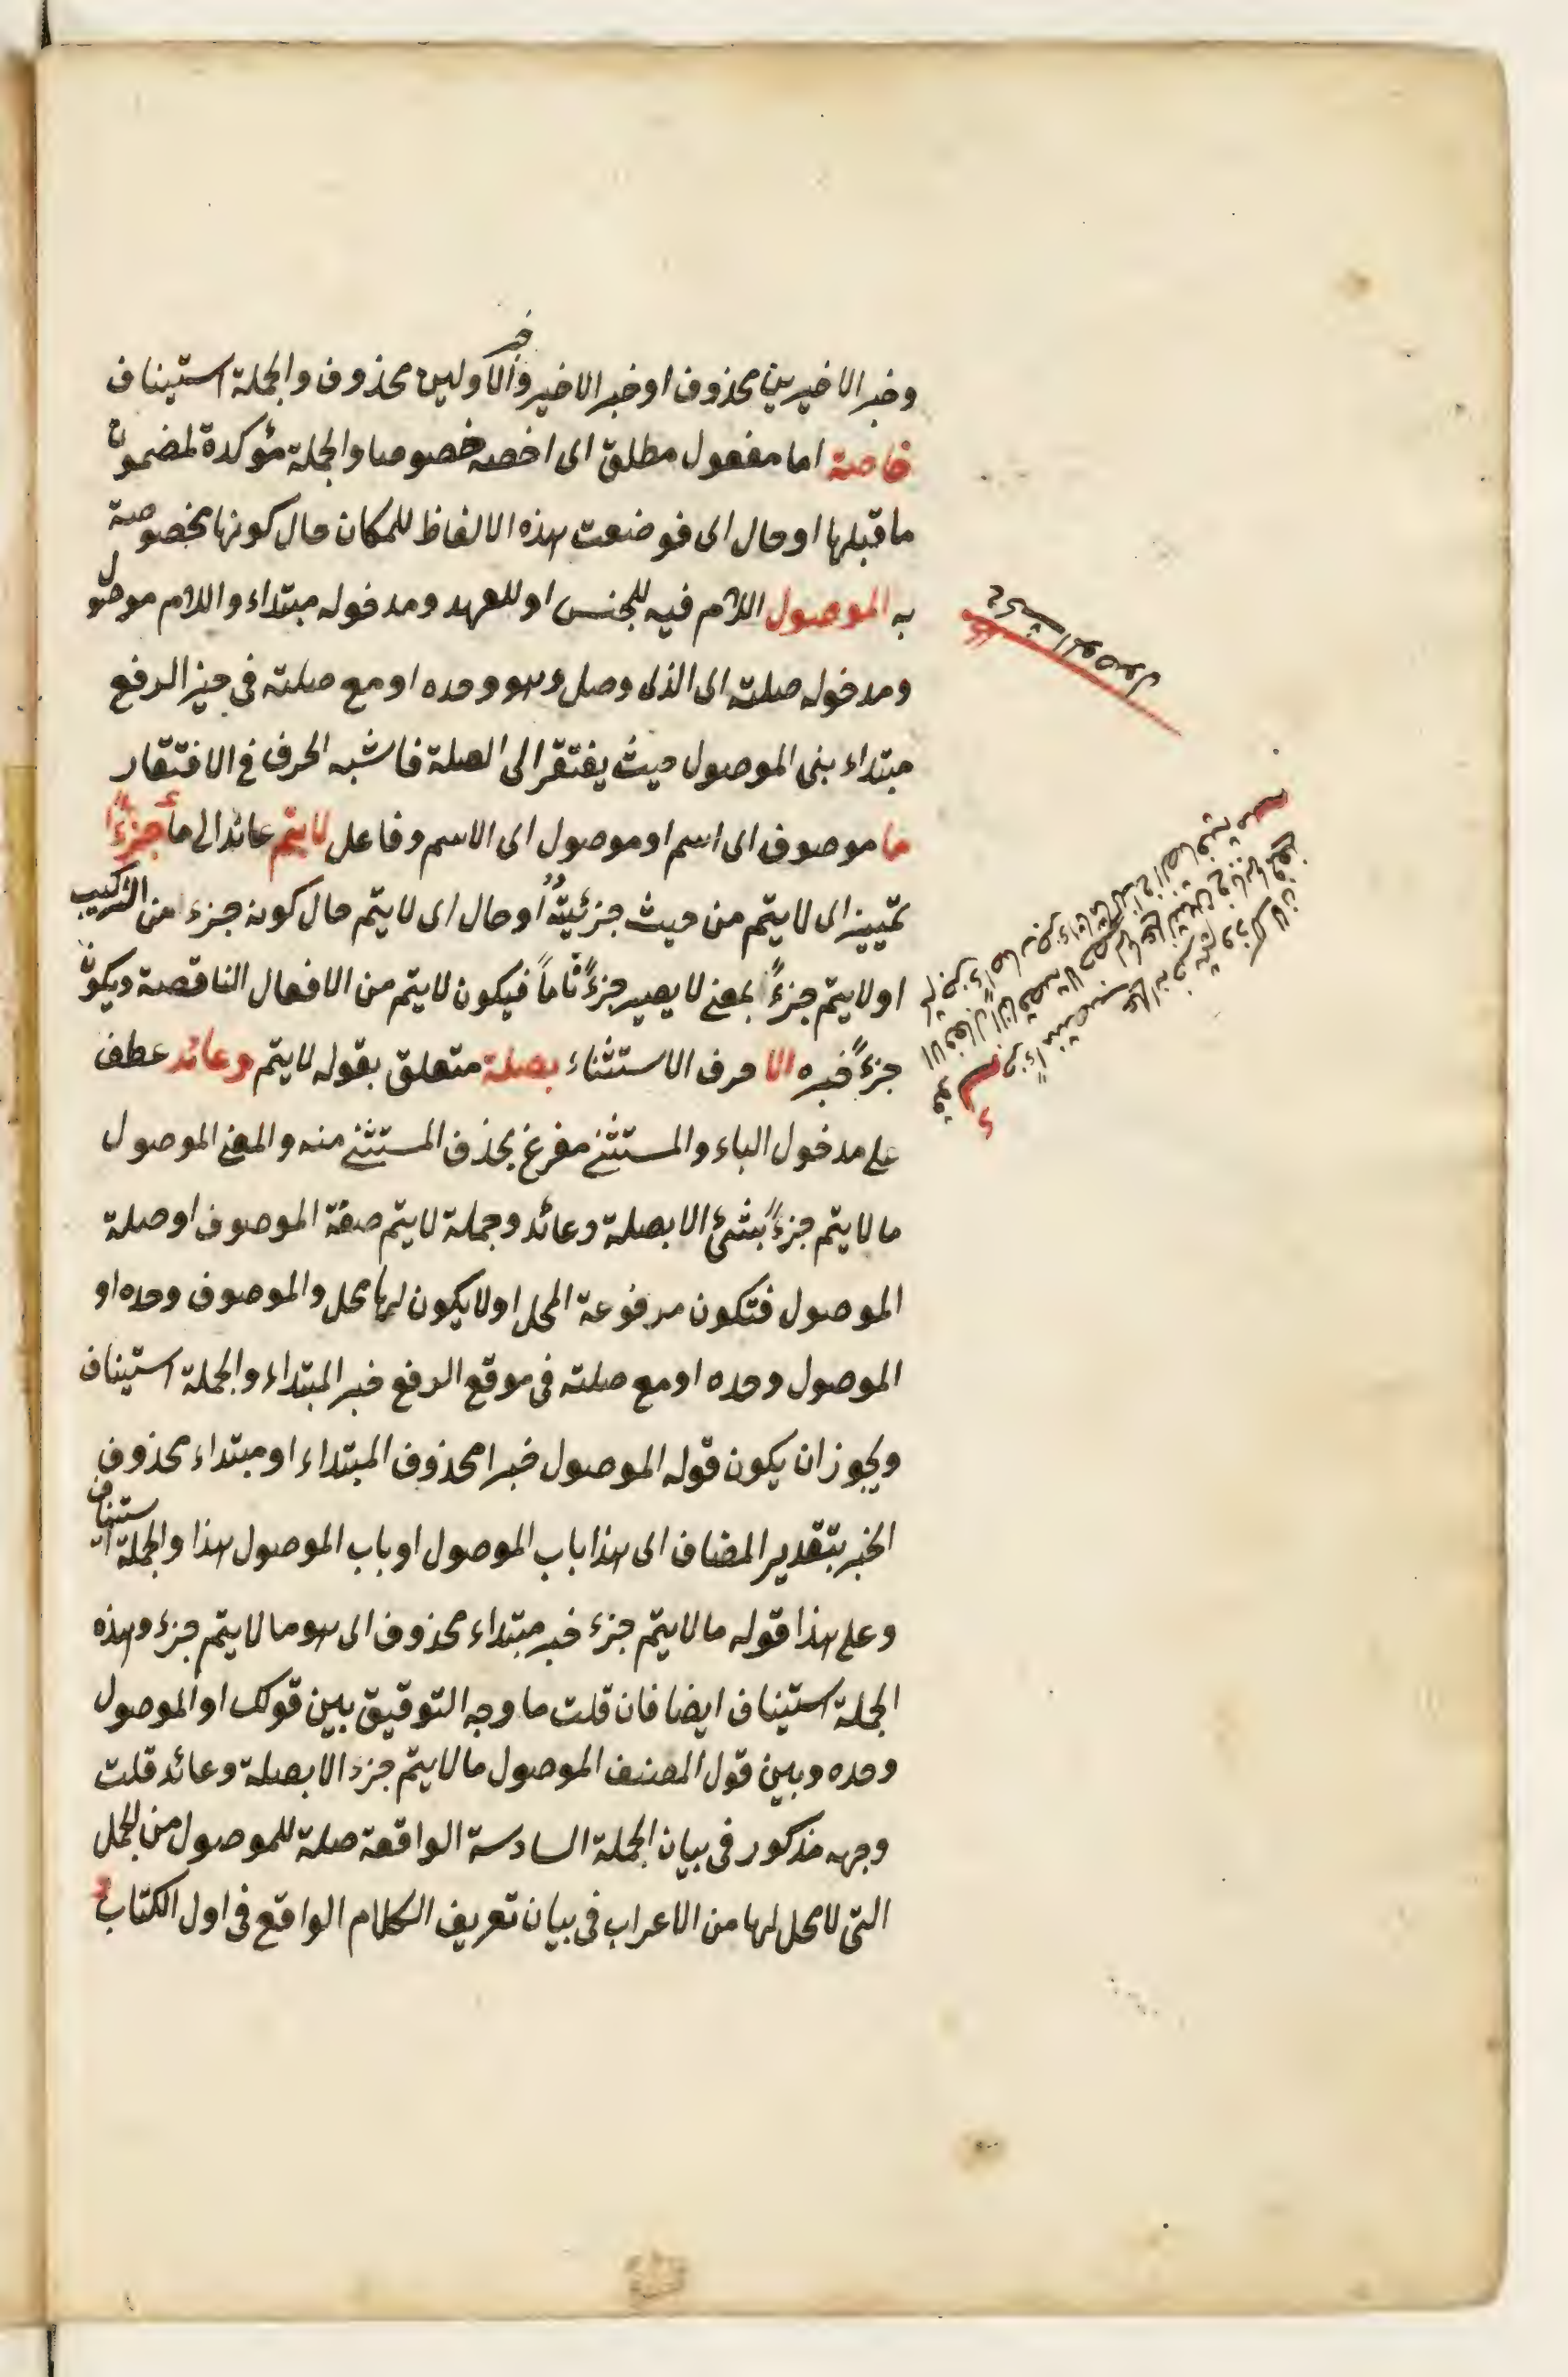 وخبر الاخيرين محذوف او خبر الاخير وخبر الاولين محذوف والجملة استيناف
خاصة اما مفعول مطلق اى اخصه خصوصا والجملة مؤكدة لمضمون
ما قبلها او حال اى فوضعت هذه الالفاظ للمكان حال كونها مخصوصة
به الموصول اللام فيه للجنس او للعهد ومدخوله مبتداء واللام موصول
ومدخوله صلته اى الذى وصل وهو وحده او مع صلته فى حيز الرفع
مبتداء بنى الموصول حيث يفتقر الى الصلة فاشبه الحرف فى الافتقار
ما موصوف اى اسم او موصول اى الاسم وفاعل لا يتم عائد الى ما جزءًا
تمييز اى لا يتم من حيث جزئيته او حال اى لا يتم حال كونه جزءا من التركيب
او لا يتم جزءً بمعنى لا يصير جزءً تاماً فيكون لا يتم من الافعال الناقصة ويكون
جزءً خبره الا حرف الاستثناء بصلة متعلق بقوله لا يتم وعائد عطف
على مدخول الباء والمستثنى مفرغ بحذف المستثنى منه والمعنى الموصول
ما لا يتم جزءً بشئ الا بصلة وعائد وجملة لا يتم صفة الموصوف او صلة
الموصول فتكون مرفوعة المحل او لا يكون لها محل والموصوف وحده او
الموصول وحده او مع صلته فى موقع الرفع خبر المبتداء والجملة استيناف
ويجوز ان يكون قوله الموصول خبرا محذوف المبتداء او مبتداء محذوف
الخبر بتقدير المضاف اى هذا باب الموصول او باب الموصول هذا والجملة استيناف
وعلى هذا قوله ما لا يتم جزء خبر مبتداء محذوف اى هو ما لا يتم جزء وهذه
الجملة استيناف ايضا فان قلت ما وجه التوفيق بين قولك او الموصول
وحده وبين قول المصنف الموصول ما لا يتم جزء الا بصلة وعائد قلت
وجهه مذكور فى بيان الجملة السادسة الواقعة صلة للموصول من الجمل
التى لا محل لها من الاعراب فى بيان تعريف الكلام الواقع فى اول الكتاب
الموصول